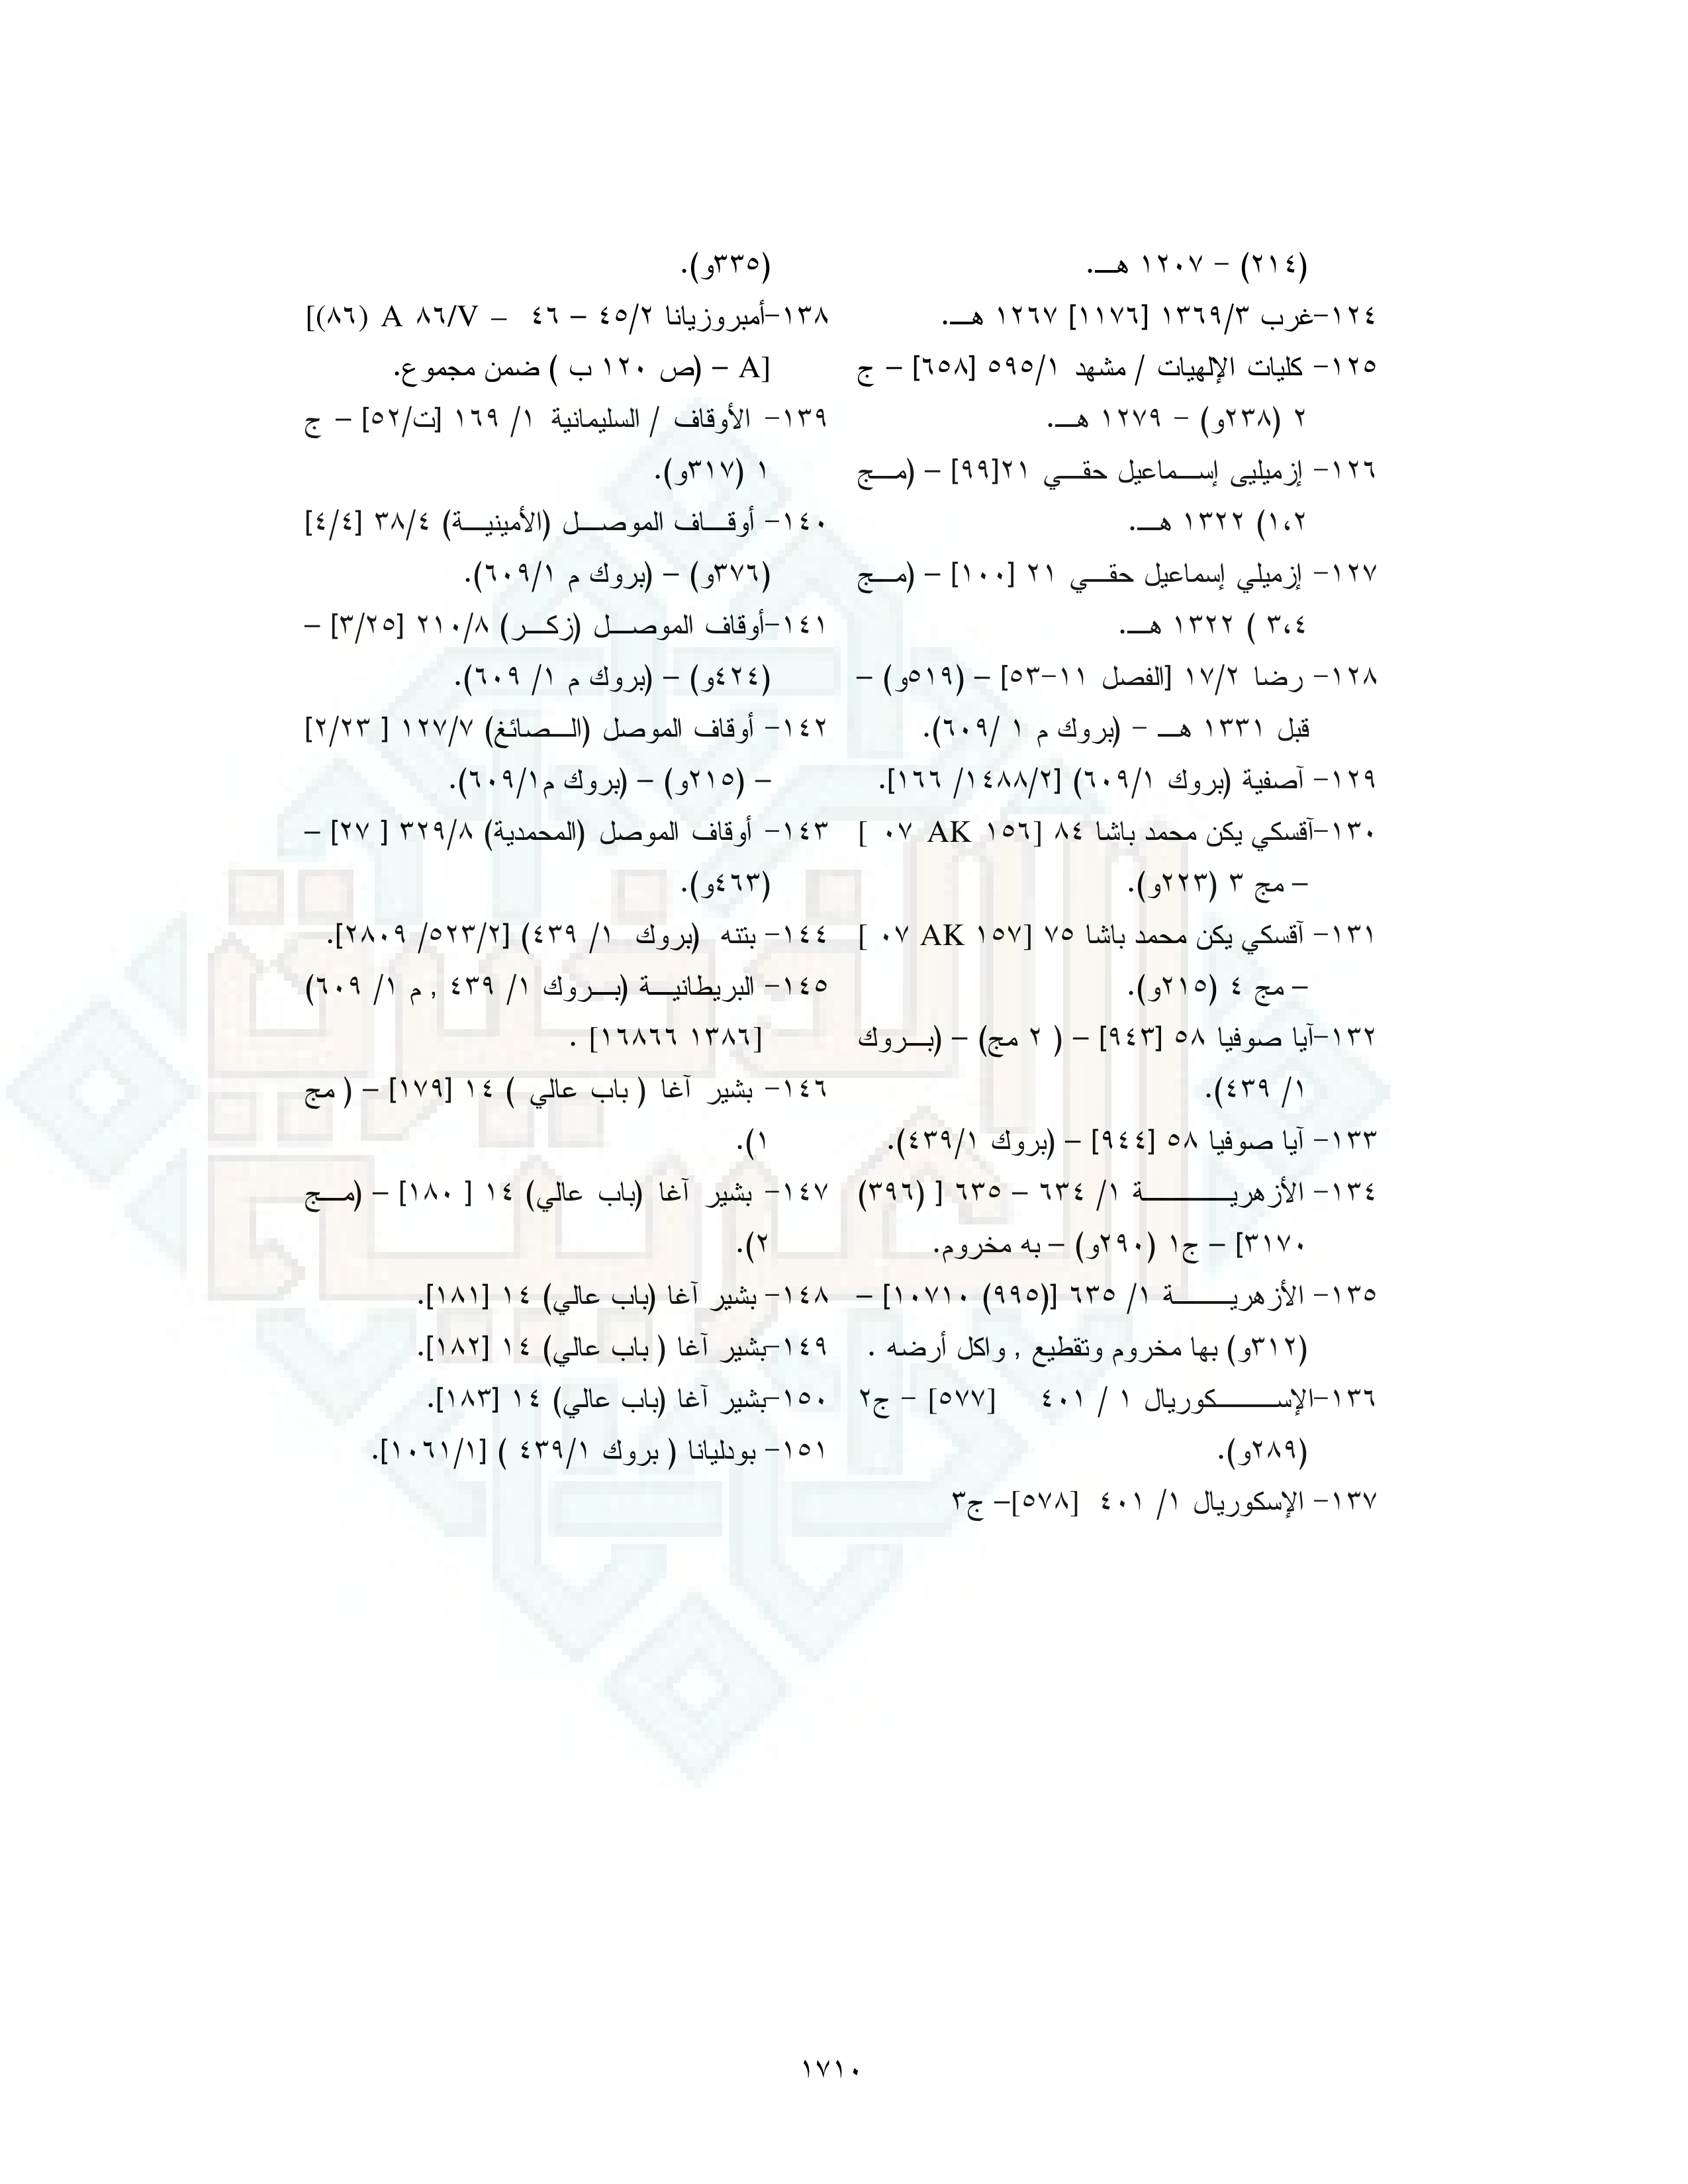 (٢١٤) – ١٢٠٧ هـ.
١٢٤–غرب ١٣٦٩/٣ [١١٧٦] ١٢٦٧ هـ.
١٢٥– كليات الإلهيات / مشهد ٥٩٥/١ [٦٥٨] – ج
٢ (٢٣٨و) – ١٢٧٩ هـ.
١٢٦– إزميليى إسماعيل حقي ٢١[٩٩] – (مج
١،٢) ١٣٢٢ هـ.
١٢٧– إزميلي إسماعيل حقي ٢١ [١٠٠] – (مج
٣،٤ ) ١٣٢٢ هـ.
١٢٨– رضا ١٧/٢ [الفصل ١١–٥٣] – (٥١٩و) –
قبل ١٣٣١ هـ – (بروك م ١ /٦٠٩).
١٢٩– آصفية (بروك ٦٠٩/١) [١٤٨٨/٢/ ١٦٦].
١٣٠–آقسكي يكن محمد باشا ٨٤ [١٥٦ AK ٠٧ ]
– مج ٣ (٢٢٣و).
١٣١– آقسكي يكن محمد باشا ٧٥ [١٥٧ AK ٠٧ ]
– مج ٤ (٢١٥و).
١٣٢–آيا صوفيا ٥٨ [٩٤٣] – ( ٢ مج) – (بروك
١/ ٤٣٩).
١٣٣– آيا صوفيا ٥٨ [٩٤٤] – (بروك ٤٣٩/١).
١٣٤– الأزهرية ١/ ٦٣٤ – ٦٣٥ [ (٣٩٦)
٣١٧٠] – ج١ (٢٩٠و) – به مخروم.
١٣٥– الأزهرية ١/ ٦٣٥ [(٩٩٥) ١٠٧١٠] –
(٣١٢و) بها مخروم وتقطيع , واكل أرضه .
١٣٦–الإسكوريال ١ / ٤٠١ [٥٧٧] – ج٢
(٢٨٩و).
١٣٧– الإسكوريال ١/ ٤٠١ [٥٧٨]– ج٣
(٣٣٥و).
١٣٨–أمبروزيانا ٤٥/٢ – ٤٦ – A ٨٦/V (٨٦)]
[A – (ص ١٢٠ ب ) ضمن مجموع.
١٣٩– الأوقاف / السليمانية ١/ ١٦٩ [ت/٥٢] – ج
١ (٣١٧و).
١٤٠– أوقاف الموصل (الأمينية) ٣٨/٤ [٤/٤]
(٣٧٦و) – (بروك م ٦٠٩/١).
١٤١–أوقاف الموصل (زكر) ٢١٠/٨ [٣/٢٥] –
(٤٢٤و) – (بروك م ١/ ٦٠٩).
١٤٢– أوقاف الموصل (الصائغ) ١٢٧/٧ [ ٢/٢٣]
– (٢١٥و) – (بروك م٦٠٩/١).
١٤٣– أوقاف الموصل (المحمدية) ٣٢٩/٨ [ ٢٧] –
(٤٦٣و).
١٤٤– بتنه (بروك ١/ ٤٣٩) [٥٢٣/٢/ ٢٨٠٩].
١٤٥– البريطانية (بروك ١/ ٤٣٩ , م ١/ ٦٠٩)
[١٣٨٦ ١٦٨٦٦] .
١٤٦– بشير آغا ( باب عالي ) ١٤ [١٧٩] – ( مج
١).
١٤٧– بشير آغا (باب عالي) ١٤ [ ١٨٠] – (مج
٢).
١٤٨– بشير آغا (باب عالي) ١٤ [١٨١].
١٤٩–بشير آغا ( باب عالي) ١٤ [١٨٢].
١٥٠–بشير آغا (باب عالي) ١٤ [١٨٣].
١٥١– بودليانا ( بروك ٤٣٩/١ ) [١٠٦١/١].
١٧١٠